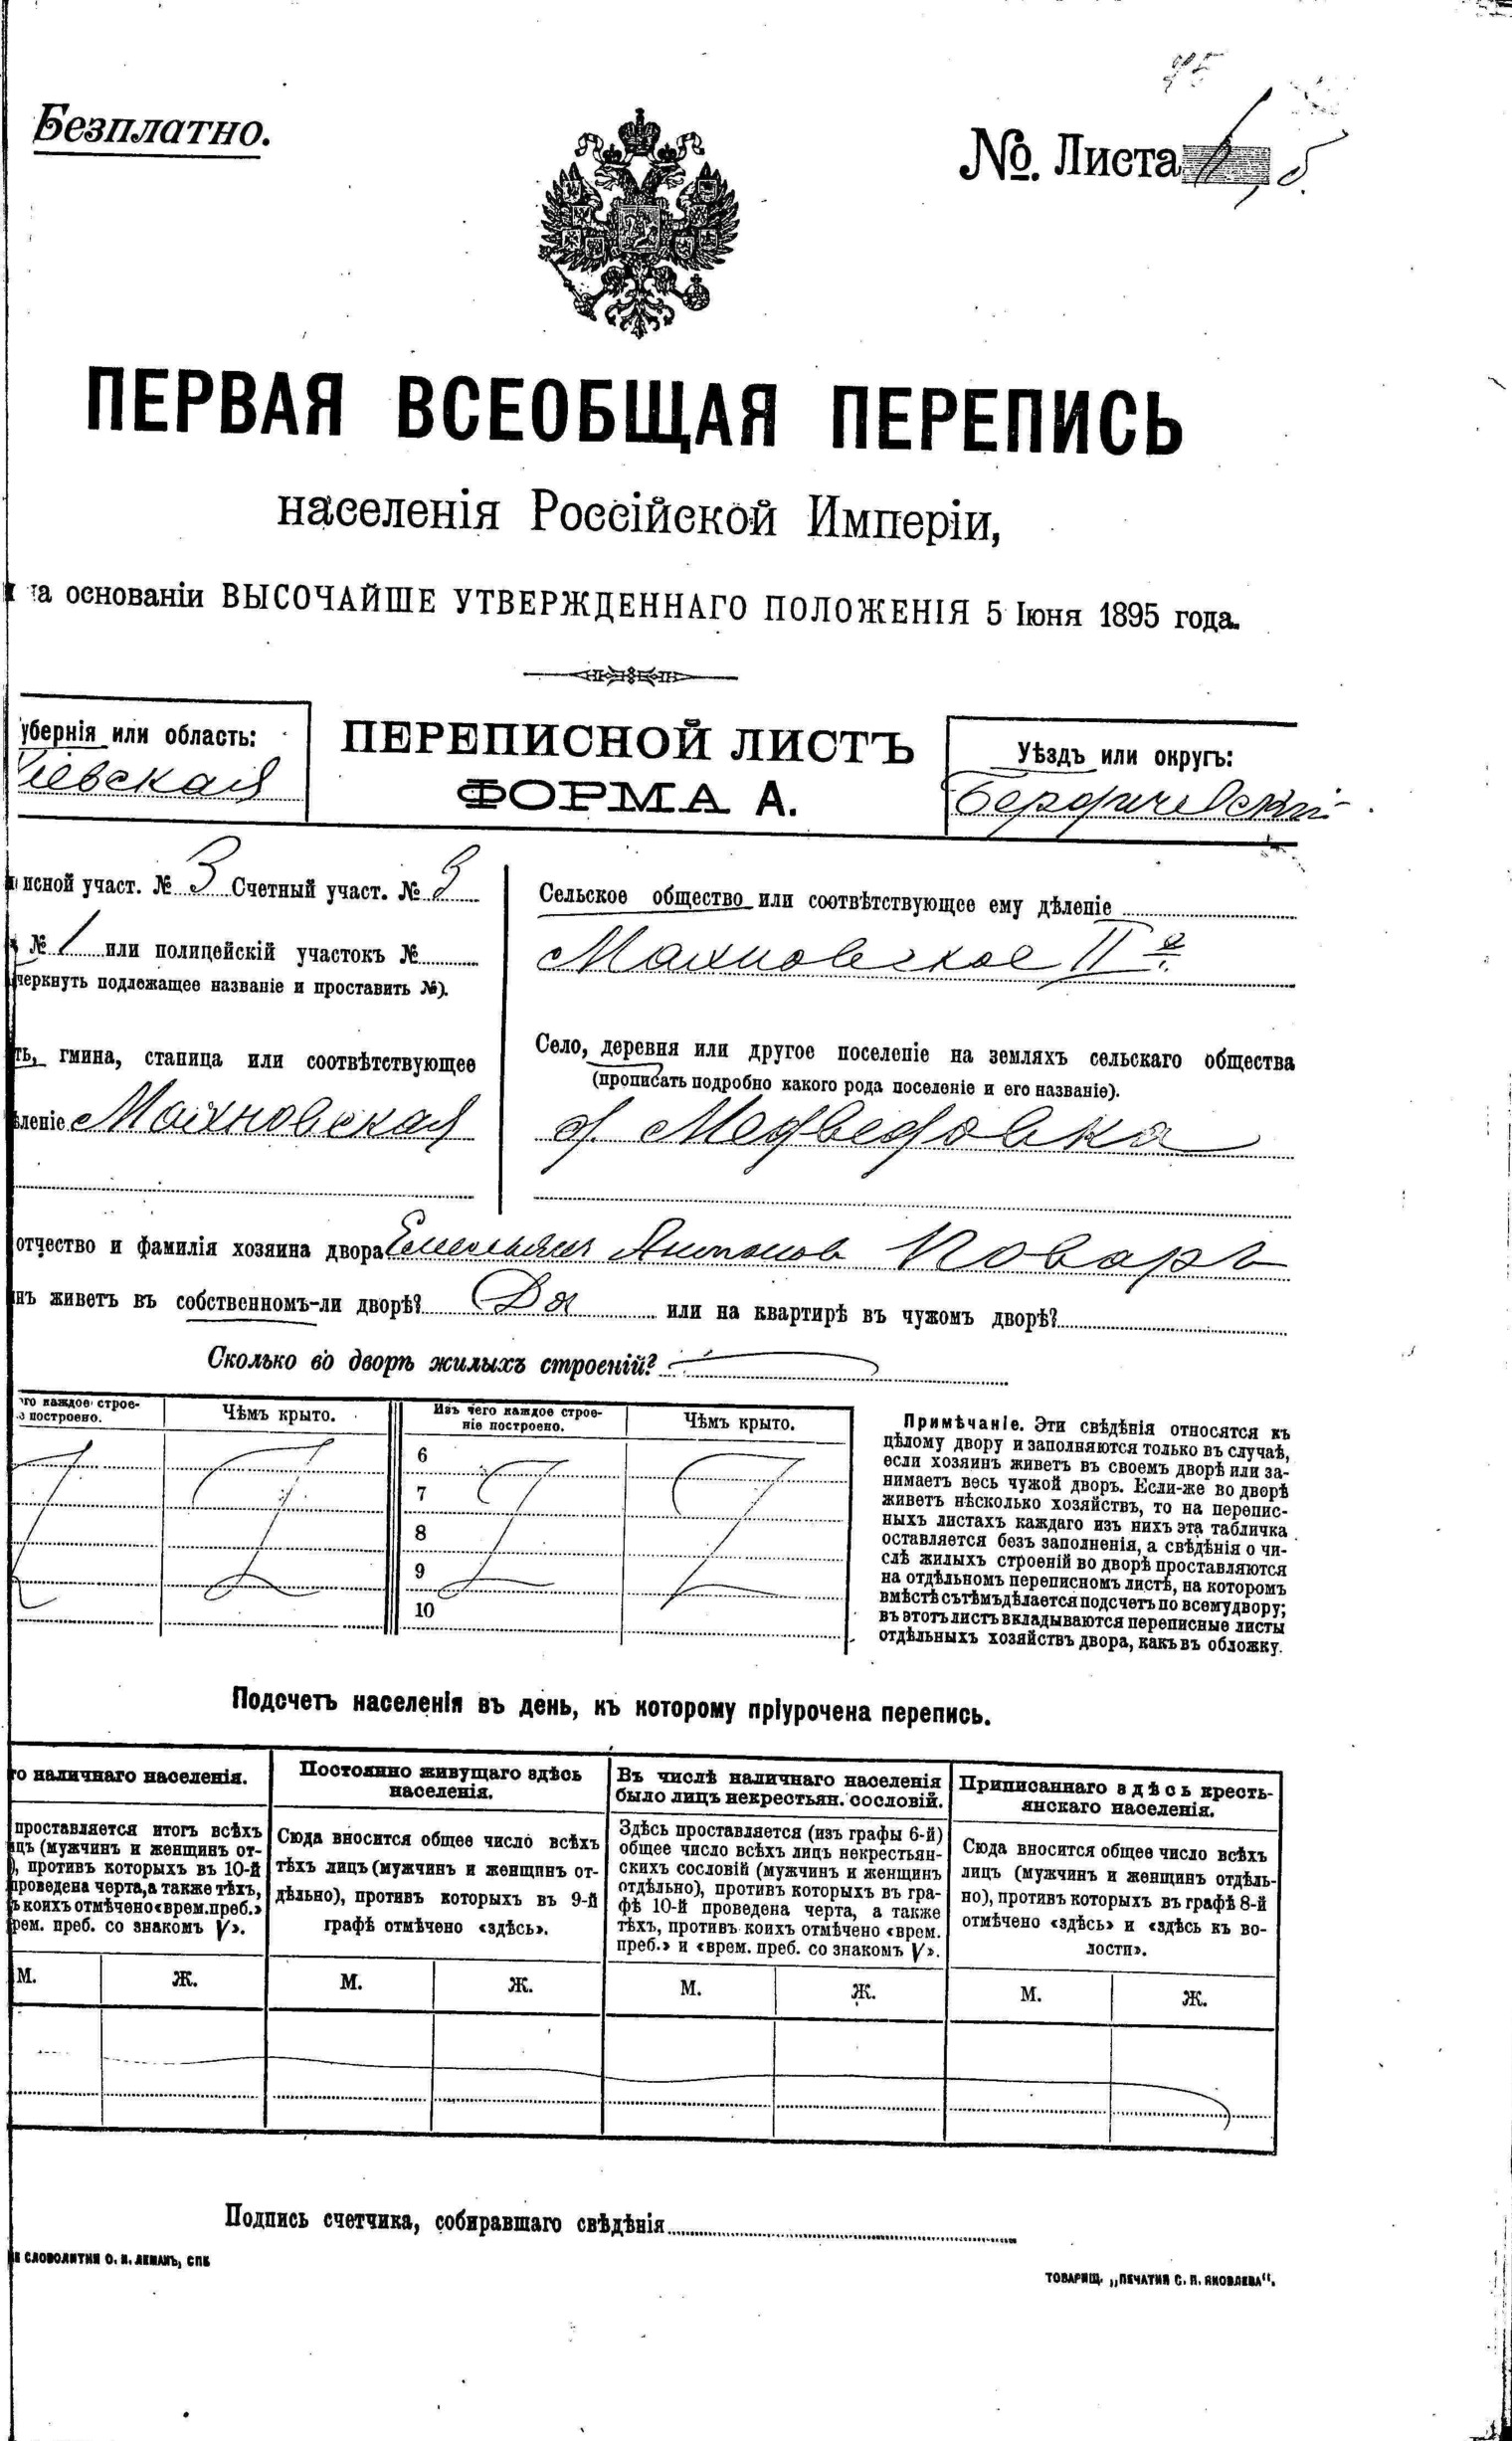 Безплатно.
№. Листа 5.
ПЕРВАЯ ВСЕОБЩАЯ ПЕРЕПИСЬ
населенія Россійской Имперіи,
на основаніи ВЫСОЧАЙШЕ УТВЕРЖДЕННАГО ПОЛОЖЕНІЯ 5 Іюня 1895 года.
убернія или область:
іевская
ПЕРЕПИСНОЙ ЛИСТЪ
ФОРМА А.
Уѣздъ или округъ:
Бердичевскій
исной участ. № 3 Счетный участ. № 9
№ 1 или полицейскій участокъ №
черкнуть подлежащее названіе и проставить №).
ть, гмина, станица или соотвѣтствующее
леніе Махновская
Сельское общество или соотвѣтствующее ему дѣленіе
Махновское II е
Село, деревня или другое поселеніе на земляхъ сельскаго общества
(прописать подробно какого рода поселеніе и его названіе).
д. Медведовка
отчество и фамилія хозяина двора Емельянъ Антоновъ Коваръ
нъ живетъ въ собственномъ-ли дворѣ? Да или на квартирѣ въ чужомъ дворѣ?
Сколько во дворѣ жилыхъ строеній?
го каждое строе-
о построено.
Чѣмъ крыто.
Изъ чего каждое строе-
ніе построено.
Чѣмъ крыто.
6
7
8
9
10
Примѣчаніе. Эти свѣдѣнія относятся къ
цѣлому двору и заполняются только въ случаѣ,
если хозяинъ живетъ въ своемъ дворѣ или за-
нимаетъ весь чужой дворъ. Если-же во дворѣ
живетъ нѣсколько хозяйствъ, то на перепис-
ныхъ листахъ каждаго изъ нихъ эта табличка
оставляется безъ заполненія, а свѣдѣнія о чи-
слѣ жилыхъ строеній во дворѣ проставляются
на отдѣльномъ переписномъ листѣ, на которомъ
вмѣстѣ съ тѣмъ дѣлается подсчетъ по всему двору;
въ этотъ листъ вкладываются переписные листы
отдѣльныхъ хозяйствъ двора, какъ въ обложку.
Подсчетъ населенія въ день, къ которому пріурочена перепись.
го наличнаго населенія.
проставляется итогъ всѣхъ
цъ (мужчинъ и женщинъ от-
), противъ которыхъ въ 10-й
проведена черта, а также тѣхъ,
ъ коихъ отмѣчено «врем. преб.»
рем. преб. со знакомъ V».
Постоянно живущаго здѣсь
населенія.
Сюда вносится общее число всѣхъ
тѣхъ лицъ (мужчинъ и женщинъ от-
дѣльно), противъ которыхъ въ 9-й
графѣ отмѣчено «здѣсь».
Въ числѣ наличнаго населенія
было лицъ некрестьян. сословій.
Здѣсь проставляется (изъ графы 6-й)
общее число всѣхъ лицъ некрестьян-
скихъ сословій (мужчинъ и женщинъ
отдѣльно), противъ которыхъ въ гра-
фѣ 10-й проведена черта, а также
тѣхъ, противъ коихъ отмѣчено «врем.
преб.» и «врем. преб. со знакомъ V».
Приписаннаго здѣсь кресть-
янскаго населенія.
Сюда вносится общее число всѣхъ
лицъ (мужчинъ и женщинъ отдѣль-
но), противъ которыхъ въ графѣ 8-й
отмѣчено «здѣсь» и «здѣсь къ во-
лости».
М. Ж. М. Ж. М. Ж. М. Ж.
Подпись счетчика, собиравшаго свѣдѣнія
Е СЛОВОЛИТНЯ О. И. ЛЕМАНЪ, СПБ
ТОВАРИЩ. „ПЕЧАТНЯ С. П. ЯКОВЛЕВА“.